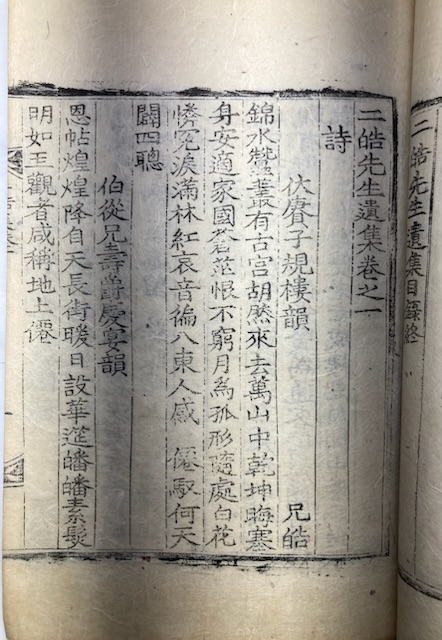 二皓先生遺集目録終
二皓先生遺集卷之一
詩
伏賡子規樓韻 兄皓
錦水蠶叢有古宮胡然來去萬山中乾坤晦塞
身安適家國蒼茫恨不窮月為孤形隨處白花
憐冤淚滿林紅哀音徧入東人感 僊馭何天
闢四聰
伯從兄壽爵慶宴韻
恩帖煌煌降自天長街暖日設華筵皤皤素髮
明如玉觀者咸稱地上僊